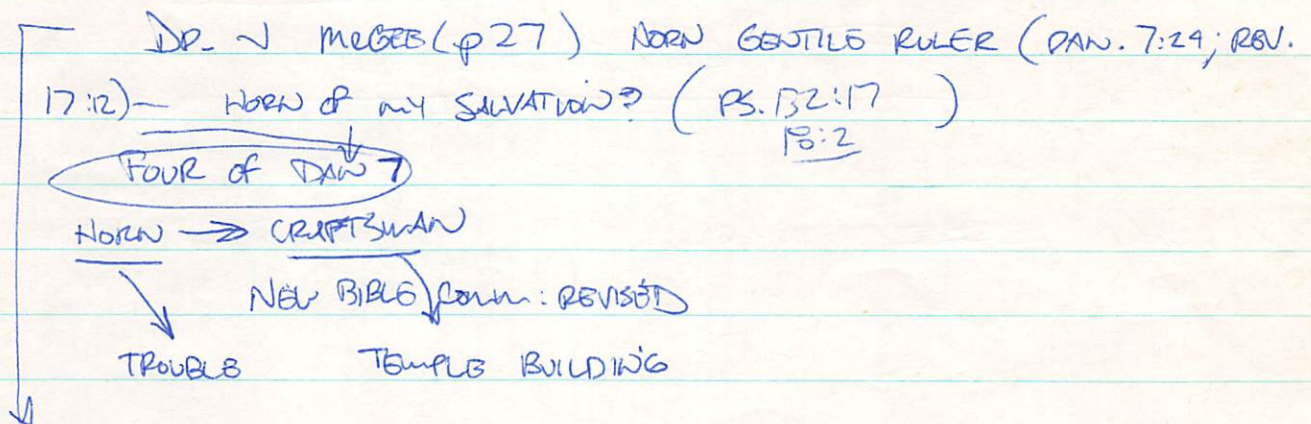 DR. J McGEE (p 27) HORN GENTILE RULER (DAN. 7:24; REV.
17:12) — HORN OF MY SALVATION? (PS. 132:17 )
18:2
FOUR OF DAN 7
HORN → CRAFTSMAN
NEW BIBLE COMM: REVISED
TROUBLE TEMPLE BUILDING